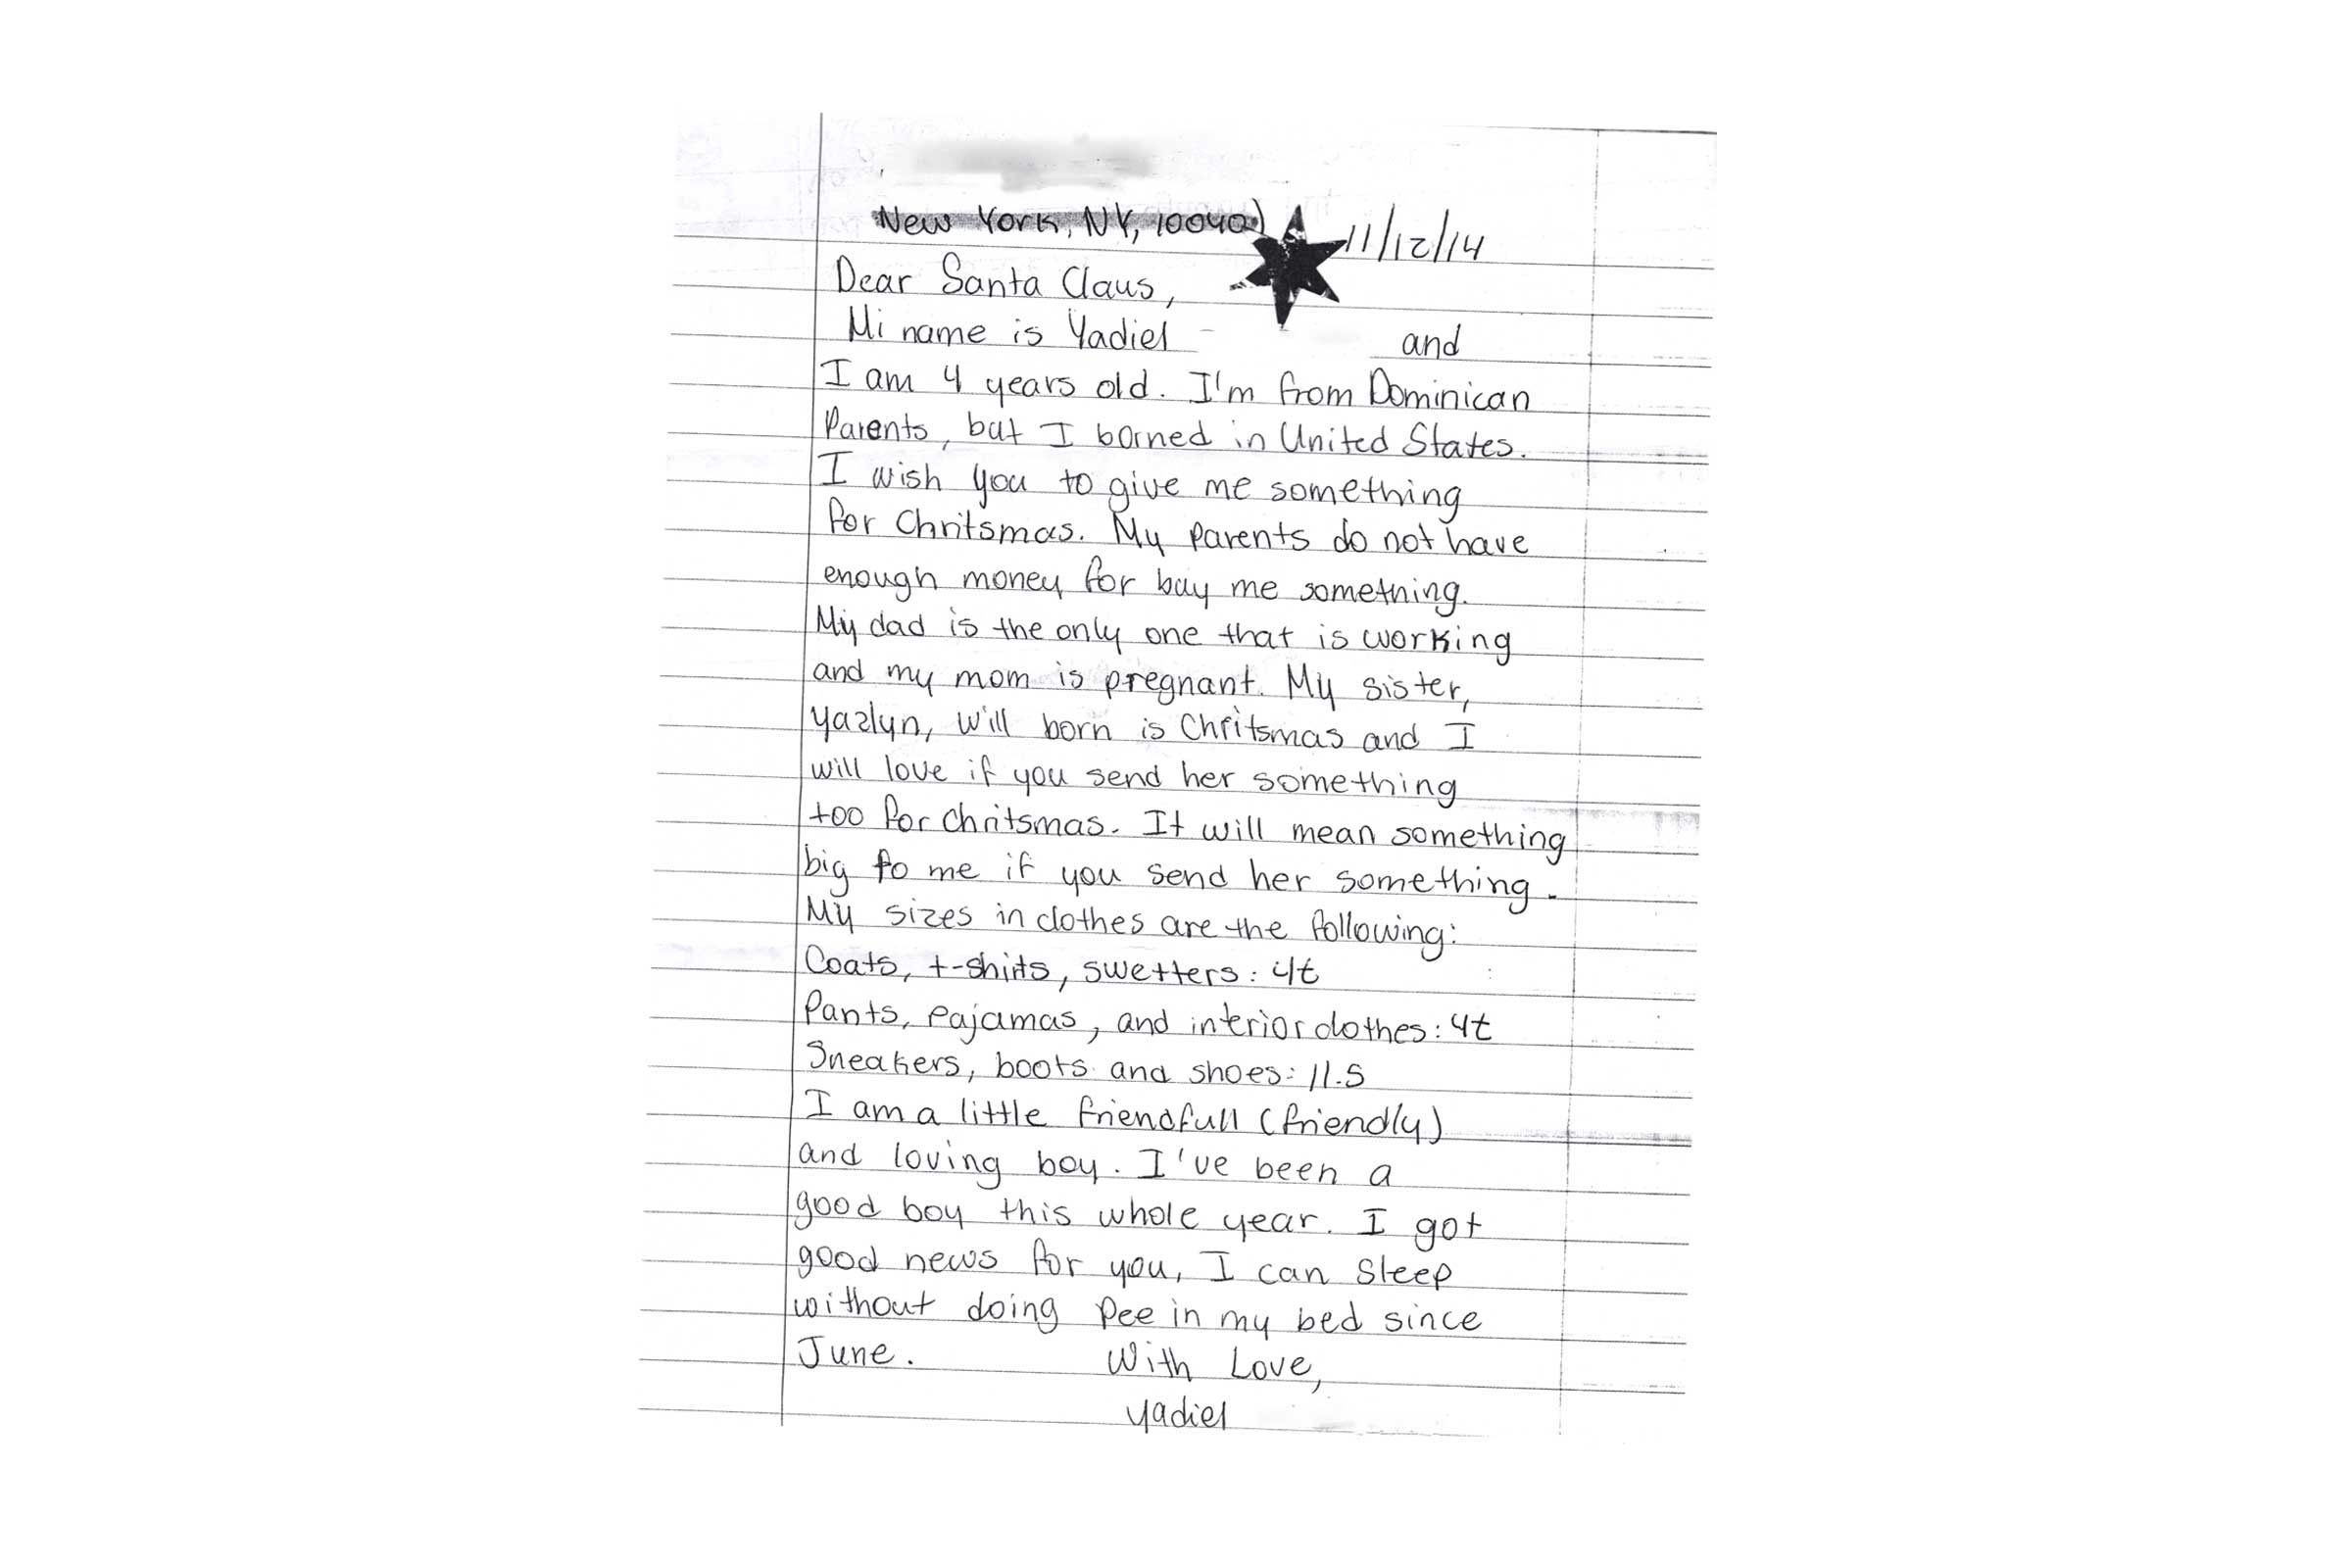 New York, NY, 10040)
11/12/14
Dear Santa Claus,
Mi name is Yadiel and
I am 4 years old. I'm from Dominican
Parents, but I borned in United States.
I wish you to give me something
for Chritsmas. My parents do not have
enough money for buy me something.
My dad is the only one that is working
and my mom is pregnant. My sister,
Yazlyn, will born is Chritsmas and I
will love if you send her something
too for Chritsmas. It will mean something
big to me if you send her something.
My sizes in clothes are the following:
Coats, t-shirts, swetters: 4t
Pants, Pajamas, and interior clothes: 4t
Sneakers, boots and shoes: 11.5
I am a little friendfull (friendly)
and loving boy. I've been a
good boy this whole year. I got
good news for you, I can sleep
without doing pee in my bed since
June. With Love,
Yadiel